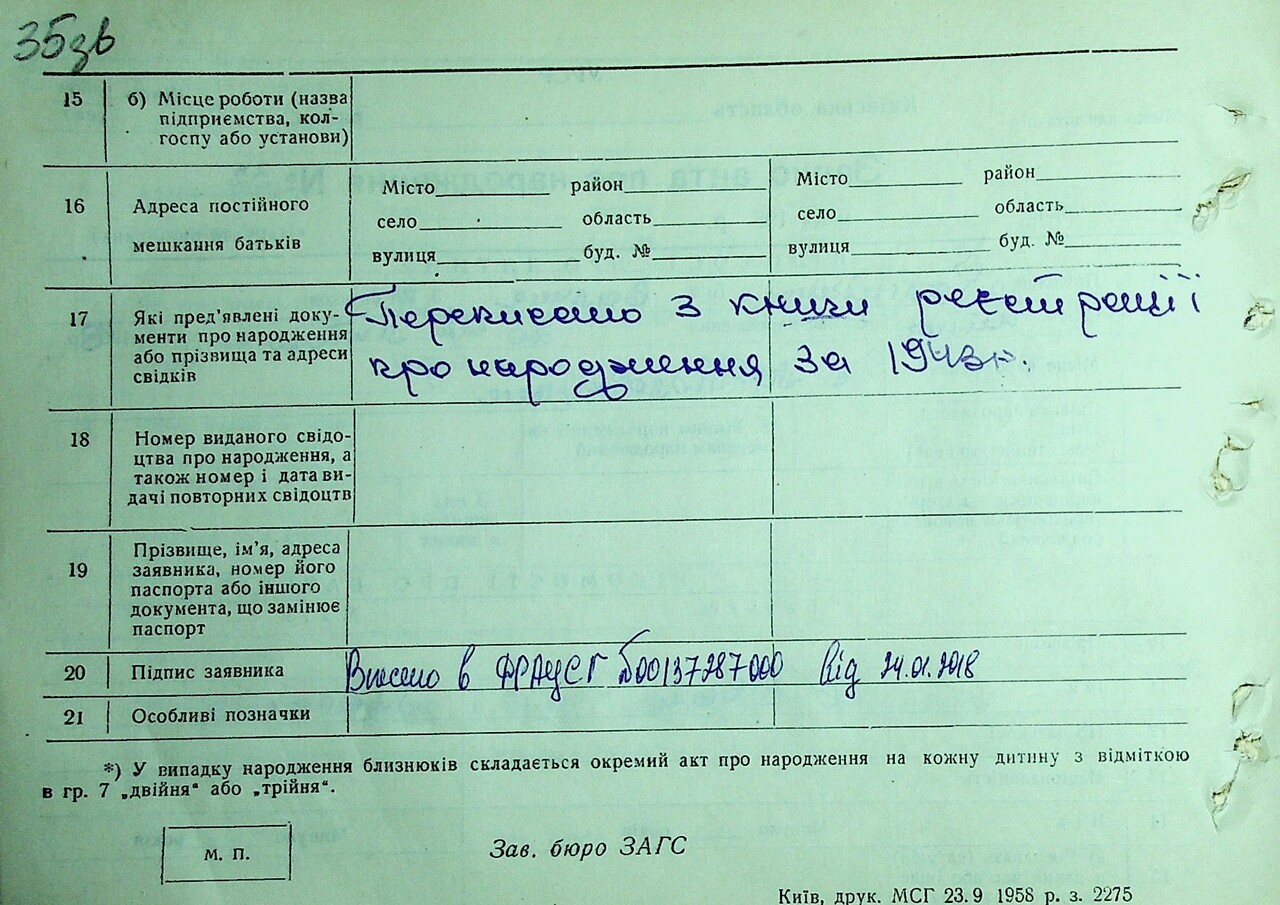 35зв
15 б) Місце роботи (назва
підприємства, кол-
госпу або установи)
16 Адреса постійного
мешкання батьків
Місто район
село область
вулиця буд. №
Місто район
село область
вулиця буд. №
17 Які пред’явлені доку-
менти про народження
або прізвища та адреси
свідків
Переписано з книги реєстрації
про народження за 1943 р.
18 Номер виданого свідо-
цтва про народження, а
також номер і дата ви-
дачі повторних свідоцтв
19 Прізвище, ім’я, адреса
заявника, номер його
паспорта або іншого
документа, що замінює
паспорт
20 Підпис заявника
Внесено в ДРАЦСГ 00137287000 від 24.01.2018
21 Особливі позначки
*) У випадку народження близнюків складається окремий акт про народження на кожну дитину з відміткою
в гр. 7 „двійня“ або „трійня“.
М. П.
Зав. бюро ЗАГС
Київ, друк. МСГ 23.9 1958 р. з. 2275